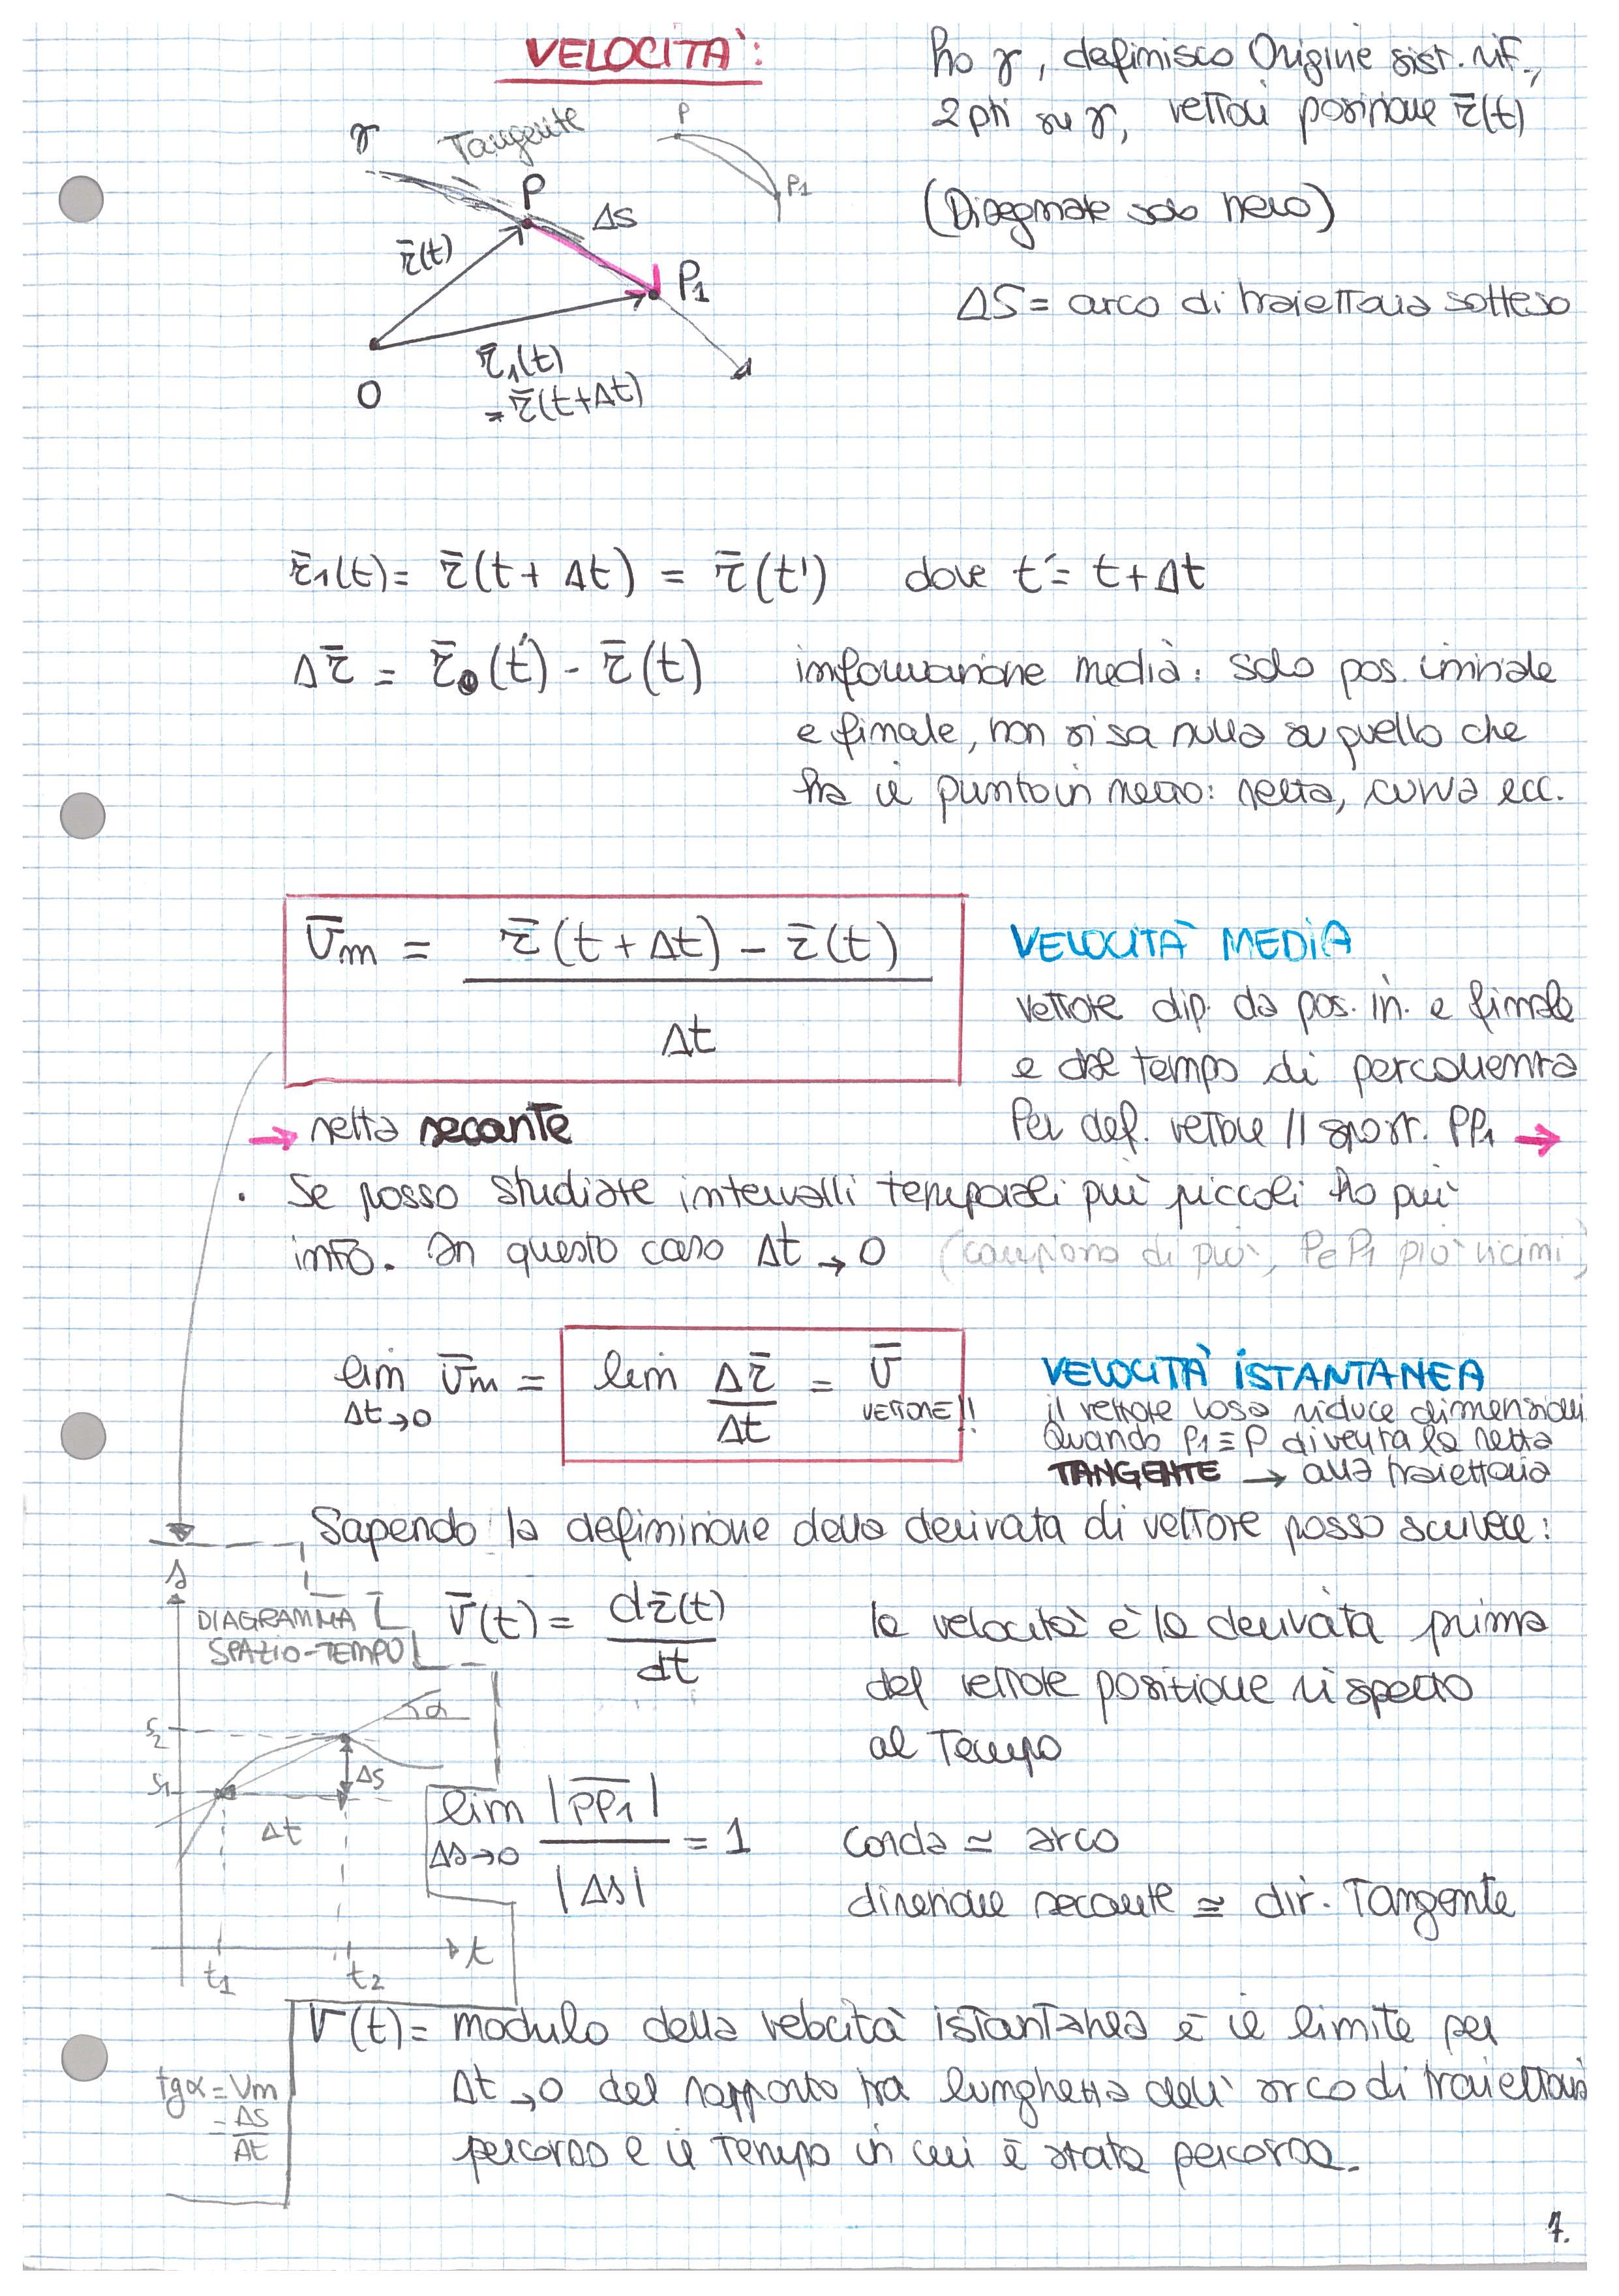 VELOCITÀ:
ho γ, definisco Origine sist. rif.,
2 pti su γ, vettori posizione r̄(t)
(Disegnate solo nero)
ΔS = arco di traiettoria sotteso
γ
Tangente
P
P1
P
ΔS
r̄(t)
P1
O
r̄1(t)
= r̄(t+Δt)
r̄1(t) = r̄(t + Δt) = r̄(t') dove t' = t + Δt
Δr̄ = r̄ (t') - r̄ (t) informazione media: solo pos. iniziale
e finale, non si sa nulla su quello che
fra il punto in mezzo: retta, curva ecc.
v̄m = r̄ (t + Δt) - r̄ (t)
Δt
VELOCITÀ MEDIA
vettore dip. da pos. in. e finale
e dal tempo di percorrenza
Per def. vettore // spost. PP1 →
→ retta secante
· Se posso studiare intervalli temporali più piccoli ho più
info. In questo caso Δt → 0 (campiono di più, P e P1 più vicini)
lim v̄m = lim Δr̄ = v̄
Δt→0 Δt VETTORE!!
VELOCITÀ ISTANTANEA
il vettore rosa riduce dimensioni
Quando P1 ≡ P diventa la retta
TANGENTE → alla traiettoria
Sapendo la definizione della derivata di vettore posso scrivere:
s
DIAGRAMMA
SPAZIO-TEMPO
v̄(t) = dr̄(t)
dt
la velocità è la derivata prima
del vettore posizione rispetto
al Tempo
α
S2
S1
ΔS
Δt
t1
t2
t
lim |PP1| = 1
Δs→0 |Δs|
corda ≃ arco
direzione secante ≅ dir. Tangente
V(t) = modulo della velocità istantanea è il limite per
Δt → 0 del rapporto tra lunghezza dell' arco di traiettoria
percorso e il Tempo in cui è stata percorsa.
tgα = Vm
= ΔS
Δt
7.